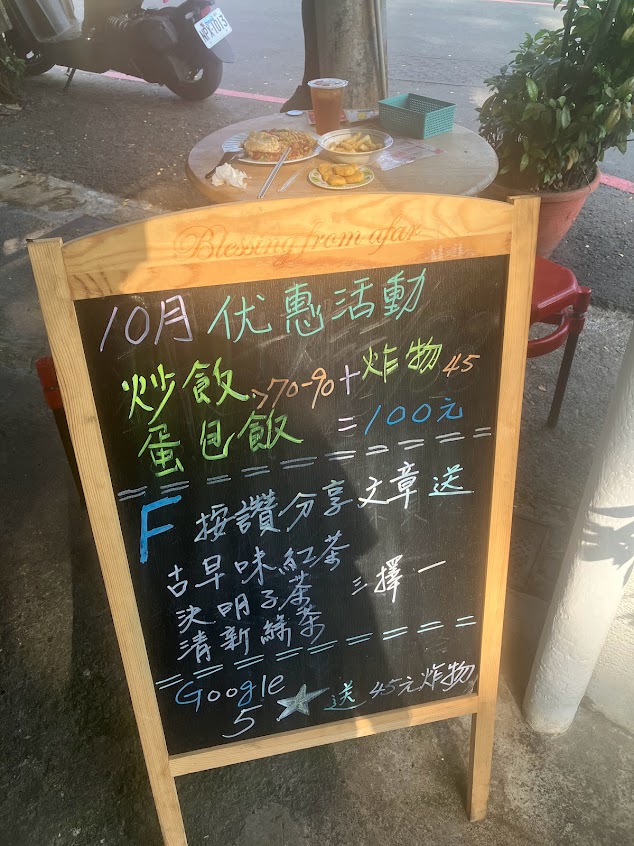 Blessing from afar
10月优惠活動
炒飯
蛋包飯 >70-90+炸物45
=100元
F 按讚分享文章送
古早味紅茶
決明子茶 三擇一
清新綠茶
Google
5★送45元炸物